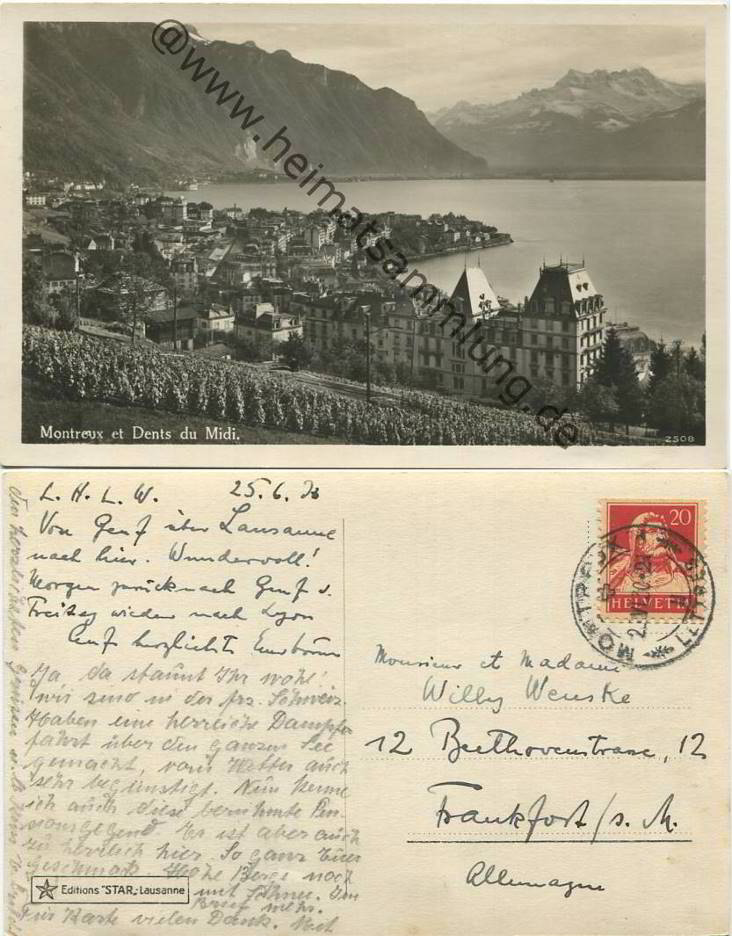 @www.heimatsammlung.de
Montreux et Dents du Midi.
2508
L. H. L. W. 25.6.
Von Genf über Lausanne
nach hier. Wundervoll!
Morgen zurück nach Genf u.
Freitag wieder nach Lyon
herzlichste
Ja, da staunt Ihr wohl!
wir sind in der frz. Schweiz.
Haben eine herrliche Dampfer
fahrt über den ganzen See
gemacht, vom Wetter auch
sehr begünstigt. Nun kenne
ich auch diese berühmte Pen-
sionsgegend. Es ist aber auch
zu herrlich hier. So ganz Euer
Geschmack. Hohe Berge noch
mit Schnee. Im
Brief mehr.
Für Karte vielen Dank. Mit
den herzlichsten
Editions "STAR"-Lausanne
20
HELVETIA
MONTREUX
LETTRES
Monsieur et Madame
Willy Wenske
12 Beethovenstrasse, 12
Frankfort/s. M.
Allemagne